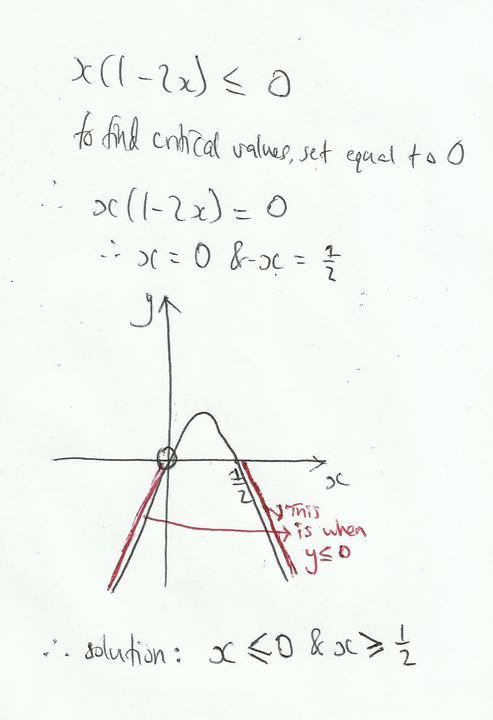 x(1-2x) ≤ 0
to find critical values, set equal to 0
∴ x(1-2x) = 0
∴ x = 0 & x = 1/2
y
x
1/2
This
is when
y ≤ 0
∴ solution: x ≤ 0 & x ≥ 1/2